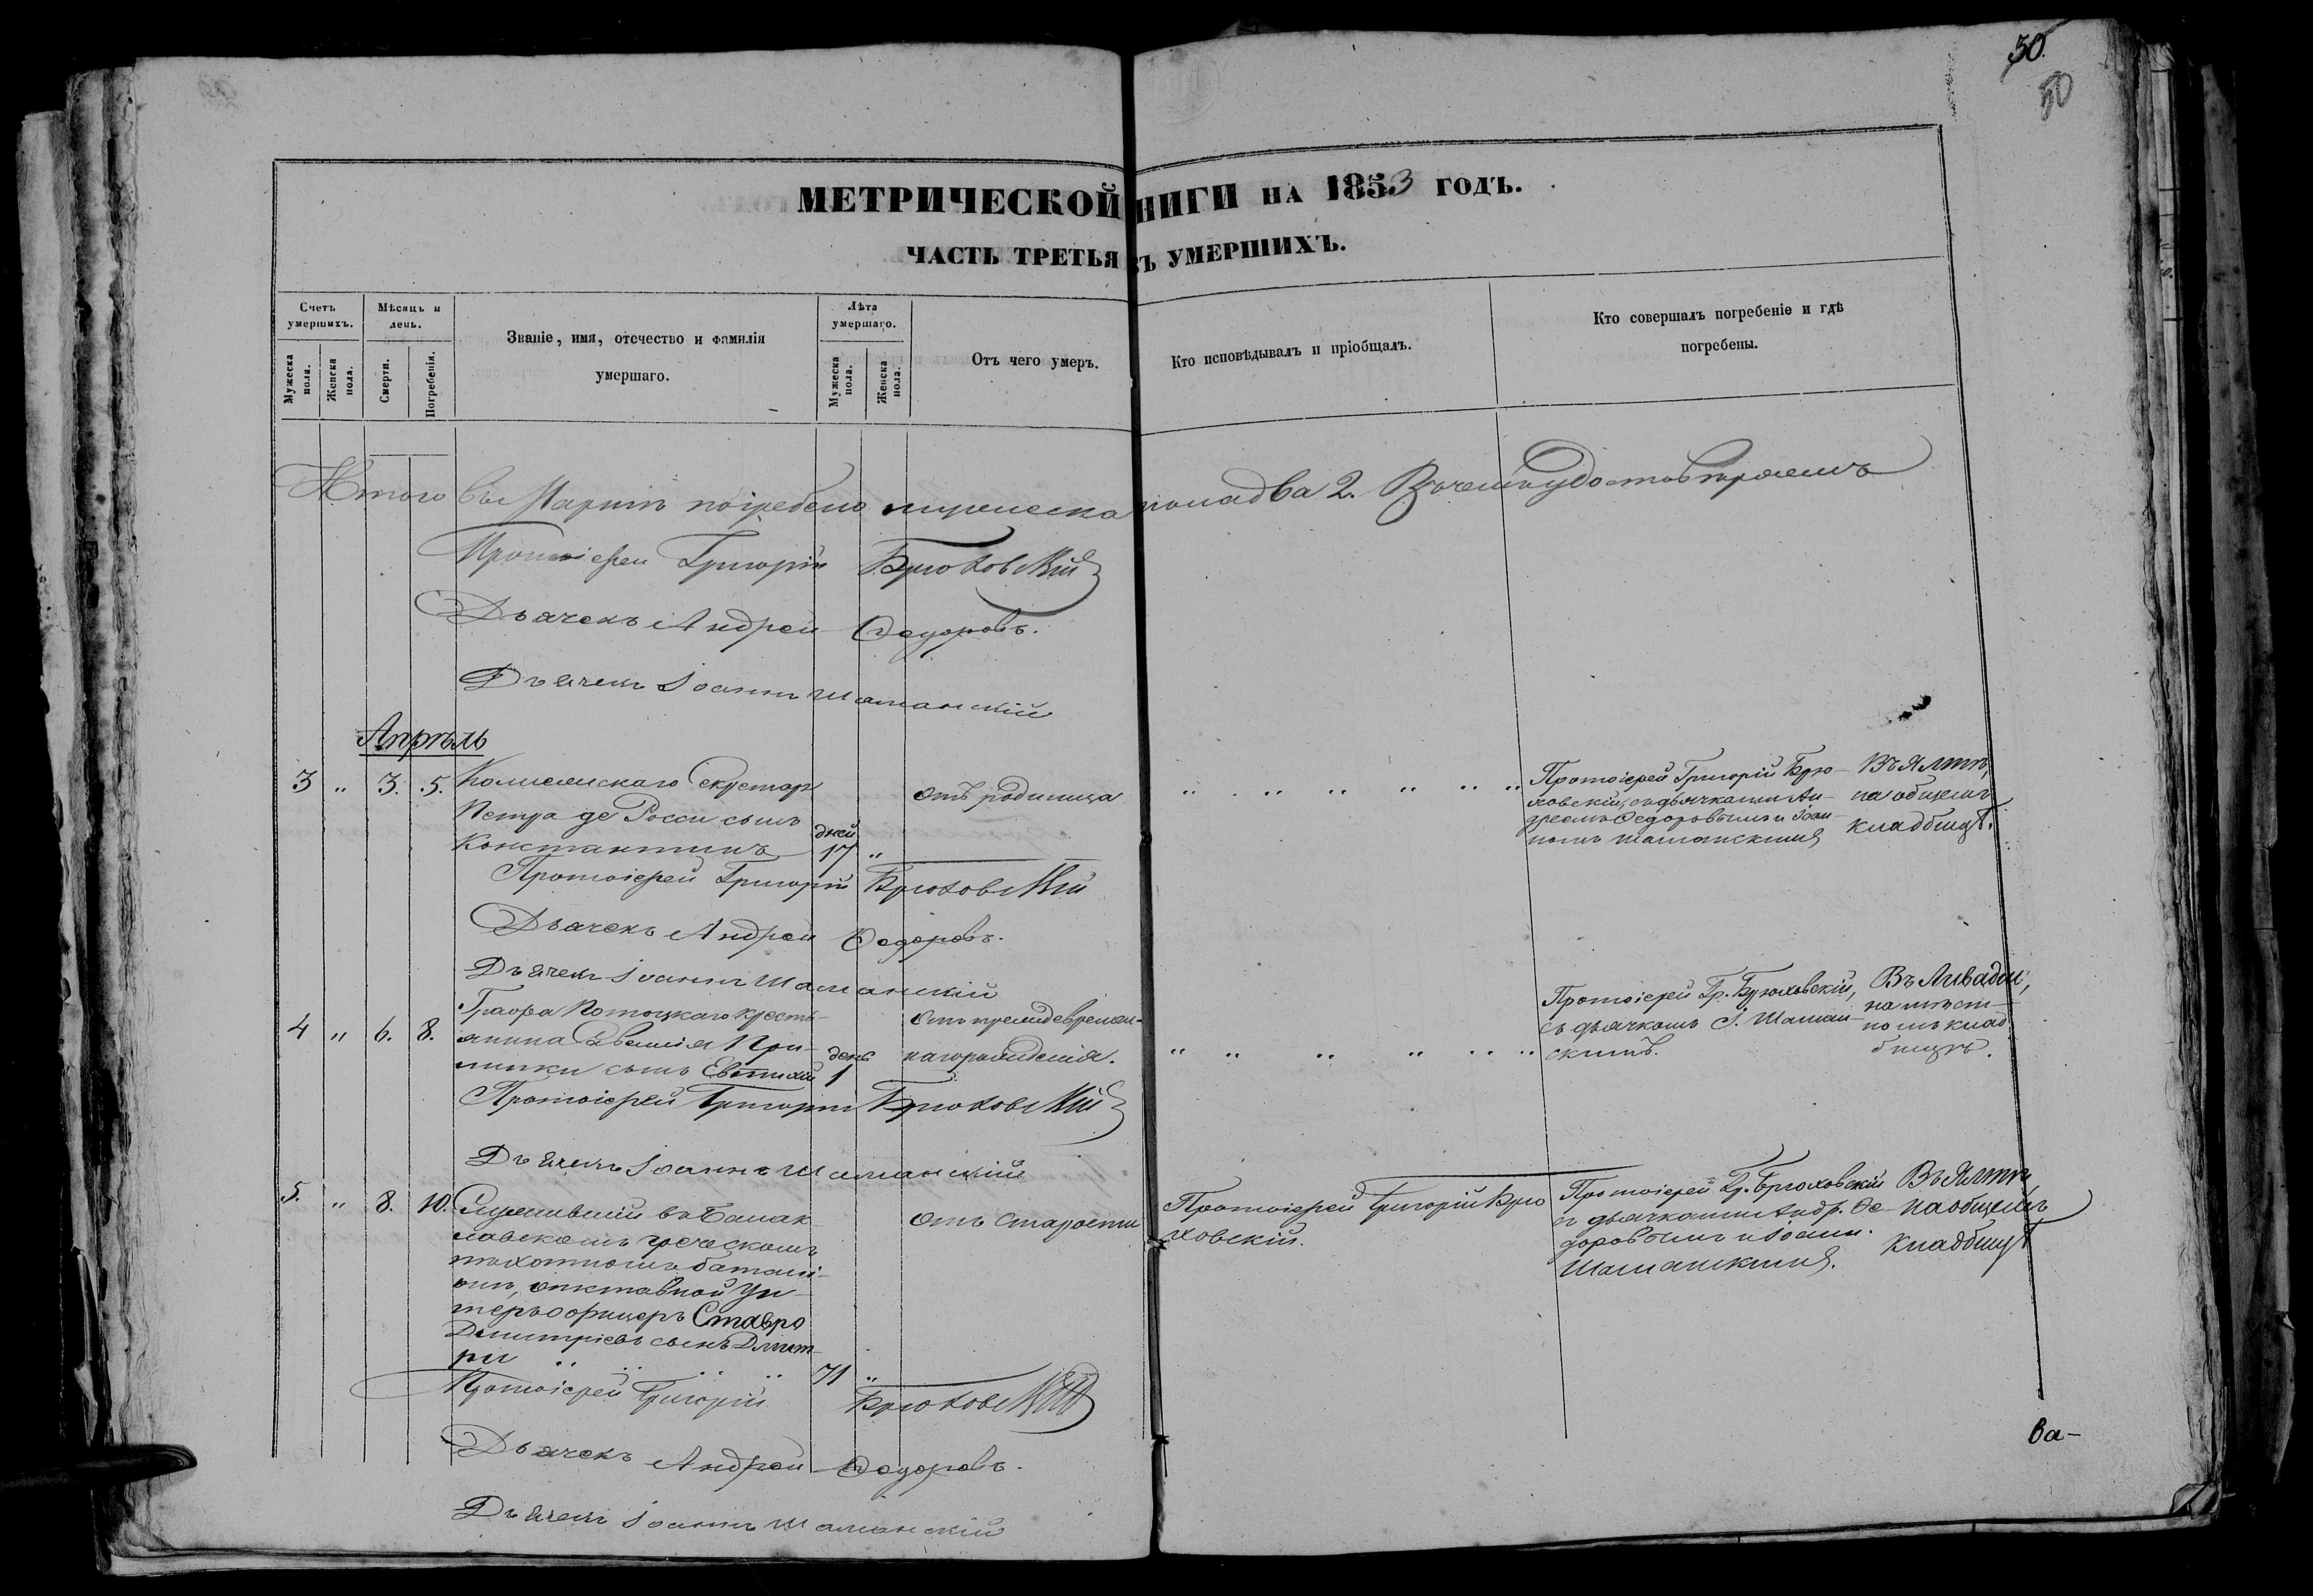 30.
50
МЕТРИЧЕСКОЙ НИГИ НА 1853 ГОДЪ.
ЧАСТЬ ТРЕТЬЯ ЗЪ УМЕРШИХЪ.
Счетъ умершихъ.
Мужеска пола.
Женска пола.
Мѣсяцъ и день.
Смерти.
Погребенія.
Званіе, имя, отечество и фамилія
умершаго.
Лѣта умершаго.
Мужеска пола.
Женска пола.
Отъ чего умеръ.
Кто исповѣдывалъ и пріобщалъ.
Кто совершалъ погребеніе и гдѣ
погребены.
Итого въ Мартѣ погребено мужеска пола два 2. Въ чемъ удостовѣряемъ
Протоіерей Григорій Брюховскій
Дьячекъ Андрей Федоровъ.
Дьячекъ Іоаннъ Шаманскій
Апрѣль
3 " 3. 5. Колежскаго Секретаря
Петра де Росси сынъ
Константинъ
дней
17 "
отъ родимца
" " " " " "
Протоіерей Григорій Брю-
ховскій, съ дьячками Ан-
дреемъ Федоровымъ и Іоан-
номъ Шаманскимъ
Въ Ялтѣ,
на общемъ
кладбищѣ.
Протоіерей Григорій Брюховскій
Дьячекъ Андрей Федоровъ.
Дьячекъ Іоаннъ Шаманскій
4 " 6. 8. Графа Потоцкаго кресть-
янина
сынъ Евтихій
день
1
Отъ преждевремен-
наго рожденія.
" " " " " "
Протоіерей Гр. Брюховскій,
съ дьячкомъ І. Шаман-
скимъ.
Въ Ливадіи,
на мѣст-
номъ клад-
бищѣ.
Протоіерей Григорій Брюховскій
Дьячекъ Іоаннъ Шаманскій
5. " 8. 10. Служившій въ Балак-
лавскомъ греческомъ
пѣхотномъ баталі-
онѣ, отставной Ун-
теръ офицеръ Ставро
Димитріевъ сынъ Дмит-
ри " " " "
71 "
отъ старости
Протоіерей Григорій Брю
ховскій.
Протоіерей Гр. Брюховскій
съ дьячками Андр. Фе-
доровымъ и Іоанн.
Шаманскимъ.
Въ Ялтѣ,
на общемъ
кладбищѣ
Протоіерей Григорій Брюховскій
Дьячекъ Андрей Федоровъ.
Дьячекъ Іоаннъ Шаманскій
ва-